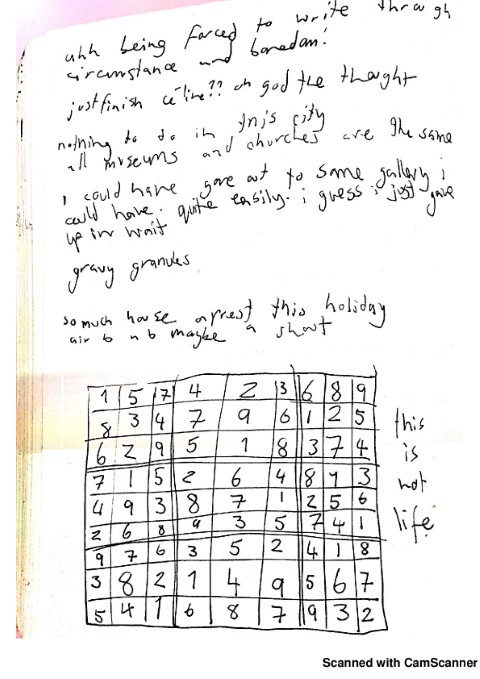 uhh being forced to write through
circumstance and boredom!
just finish céline?? oh god the thought
nothing to do in this city
all museums and churches are the same
i could have gone out to some gallery i
could have. quite easily. i guess i just gave
up in wait
gravy granules
so much house arrest this holiday
air b n b maybe a short
1 5 7 4 2 3 6 8 9
8 3 4 7 9 6 1 2 5
6 2 9 5 1 8 3 7 4
7 1 5 2 6 4 8 9 3
4 9 3 8 7 1 2 5 6
2 6 8 9 3 5 7 4 1
9 7 6 3 5 2 4 1 8
3 8 2 1 4 9 5 6 7
5 4 1 6 8 7 9 3 2
this
is
not
life
Scanned with CamScanner